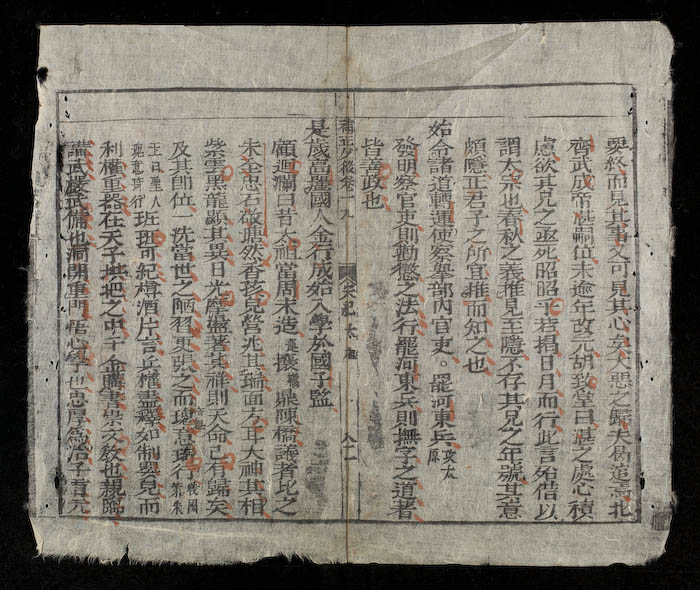 要終而見其事又可見其心矣大惡之歸夫烏逭焉北
齊武成帝嗣位未逾年改元胡致堂曰湛之處心積
慮欲其兄之亟死昭昭乎若揭日月而行此言殆借以
謂太宗也春秋之義推見至隱不存其兄之年號其意
頗隱正君子之所宜推而知之也
始命諸道轉運使察舉部內官吏。罷河東兵攻太原
發明察官吏則勸懲之法行罷河東兵則撫字之道著
皆善政也
卷一九
宋紀太祖
八二
是歲高麗國人金行成始入學於國子監
顧迴瀾曰昔太祖當周末造攘鼎陳橋議者比之
朱全忠石敬瑭然香孩兒營兆其瑞面方耳大神其相
紫雲黑龍顯其異日光摩盪著其祥則天命已有歸矣
及其即位一洗當世之陋習更張之而瑰意琦行
班班可紀樽酒片言兵權盡釋如制嬰兒而
利權重器在天子掌把之中千金購書崇文教也親臨
講武嚴武備也洞開重門悟心學也忠厚爲治子育元